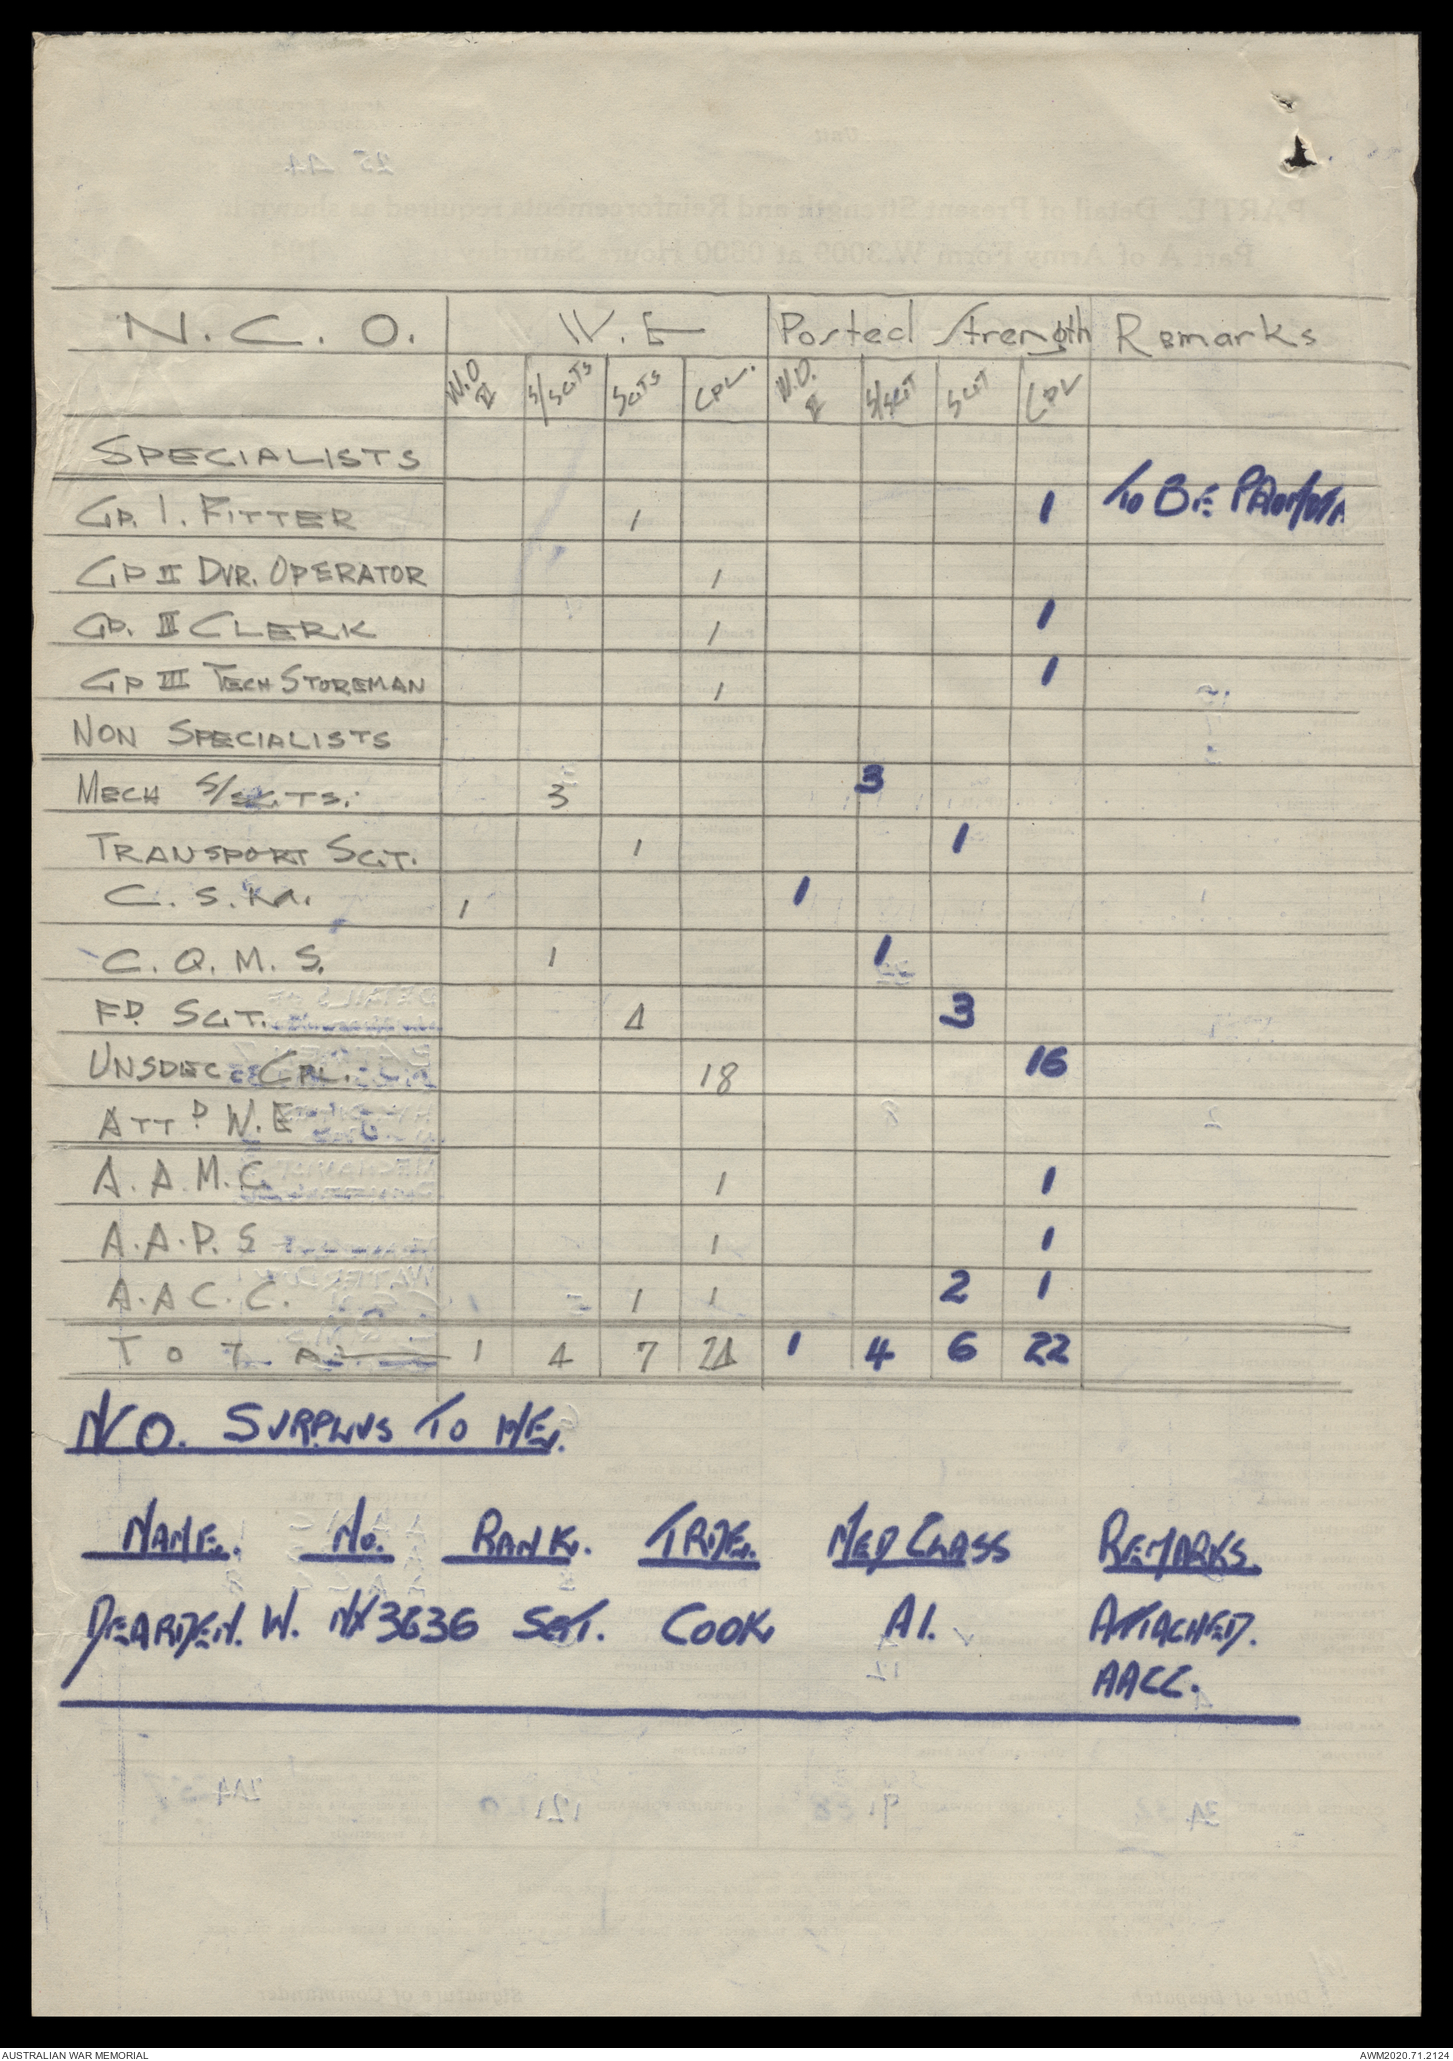 N.C.O. W.E Posted Strength Remarks
W.O II S/SGTS SGTS CPL. W.O. II S/SGT SGT CPL
SPECIALISTS
GP. I. FITTER 1 1 TO BE
GP II DVR. OPERATOR 1
GP. II CLERK 1 1
GP III TECH STOREMAN 1 1
NON SPECIALISTS
MECH S/SGTS. 3 3
TRANSPORT SGT. 1 1
C.S.M. 1 1
C.Q.M.S. 1 1
FD. SGT. 4 3
UNSPEC. CPL. 18 16
ATTD W.E
A.A.M.C. 1 1
A.A.P.S 1 1
A.A.C.C. 1 1 2 1
TOTAL 1 4 7 24 1 4 6 22
NCO. SURPLUS TO W/E.
NAME. No. RANK. TRDE. MED CLASS REMARKS.
DEARDEN. W. NX3636 SGT. COOK A1. ATTACHED.
AACC.
AUSTRALIAN WAR MEMORIAL AWM2020.71.2124